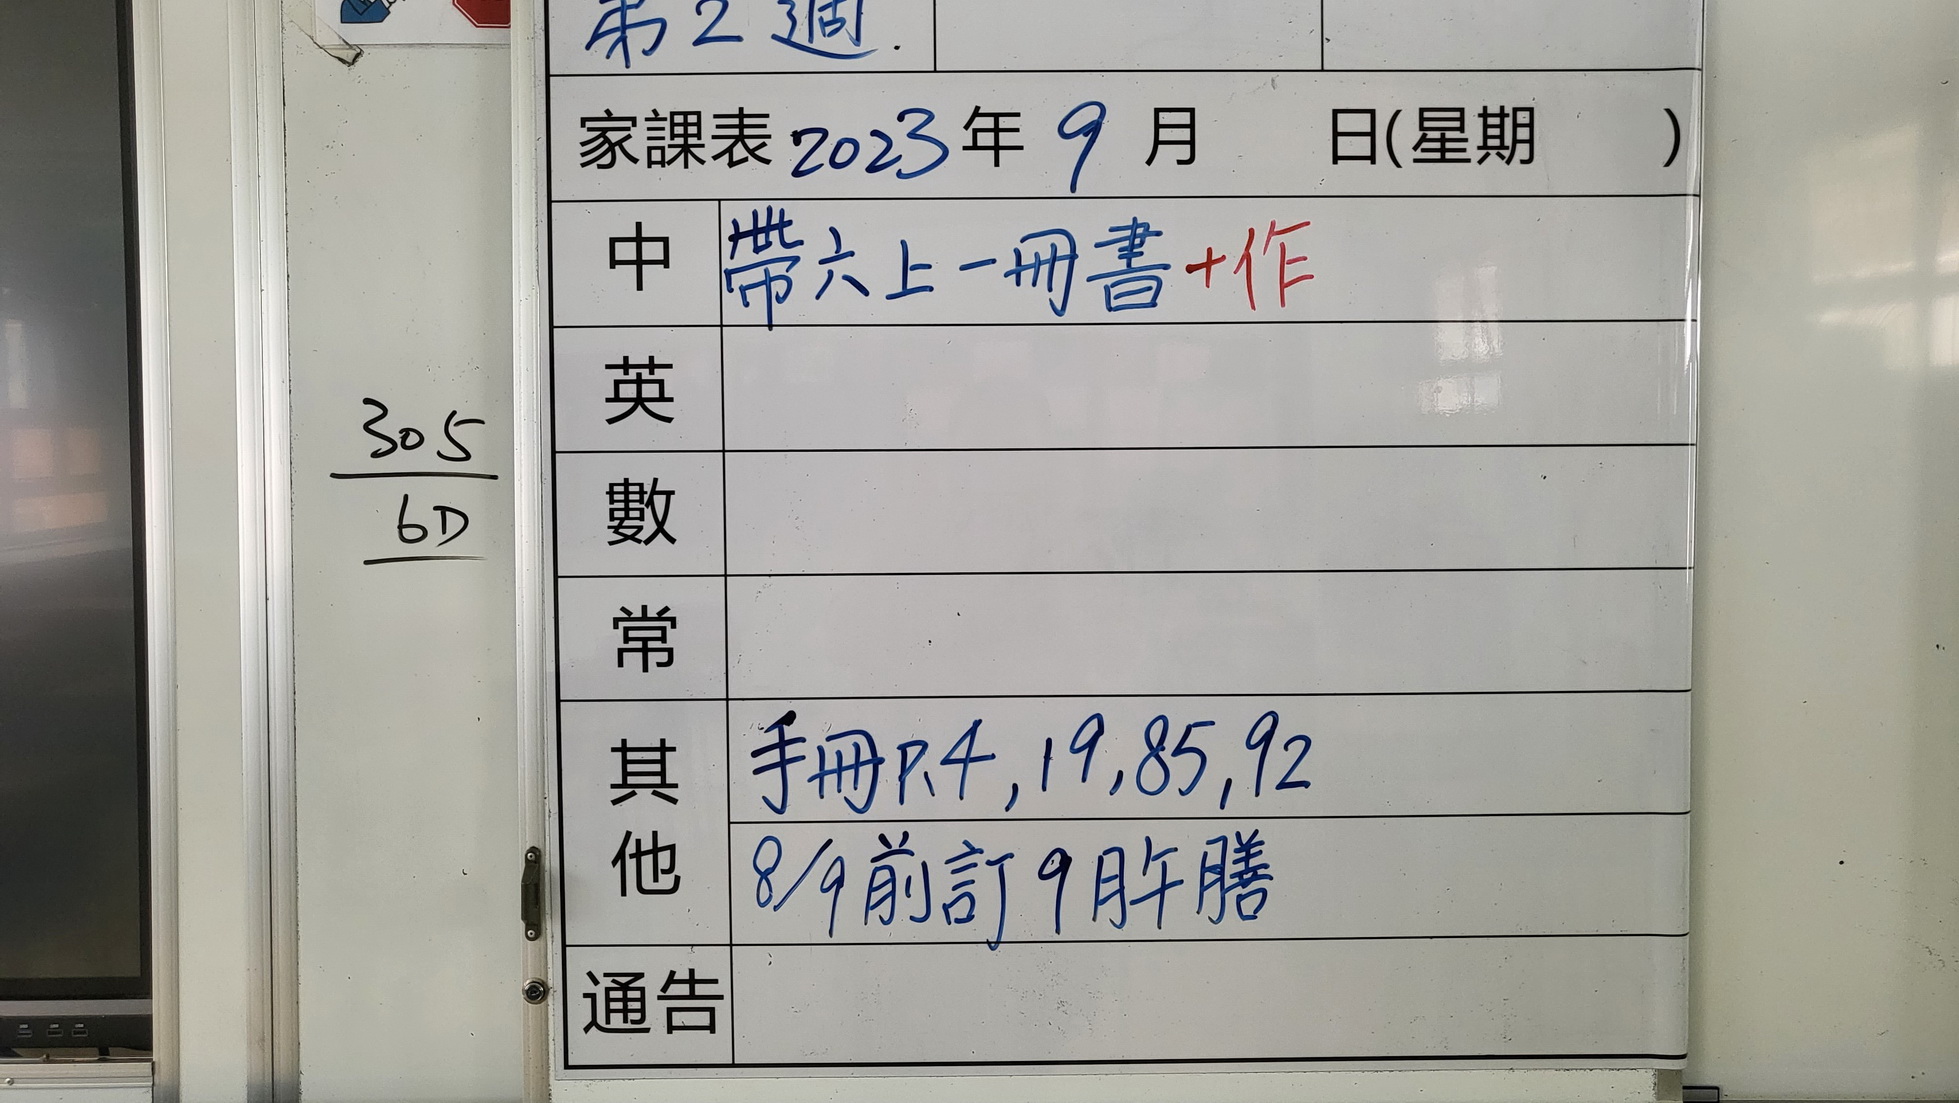 第2週.
家課表 2023 年 9 月 日(星期 )
中 帶六上一冊書+作
英
數
常
其他 手冊P.4, 19, 85, 92
8/9前訂9月午膳
通告
305
6D